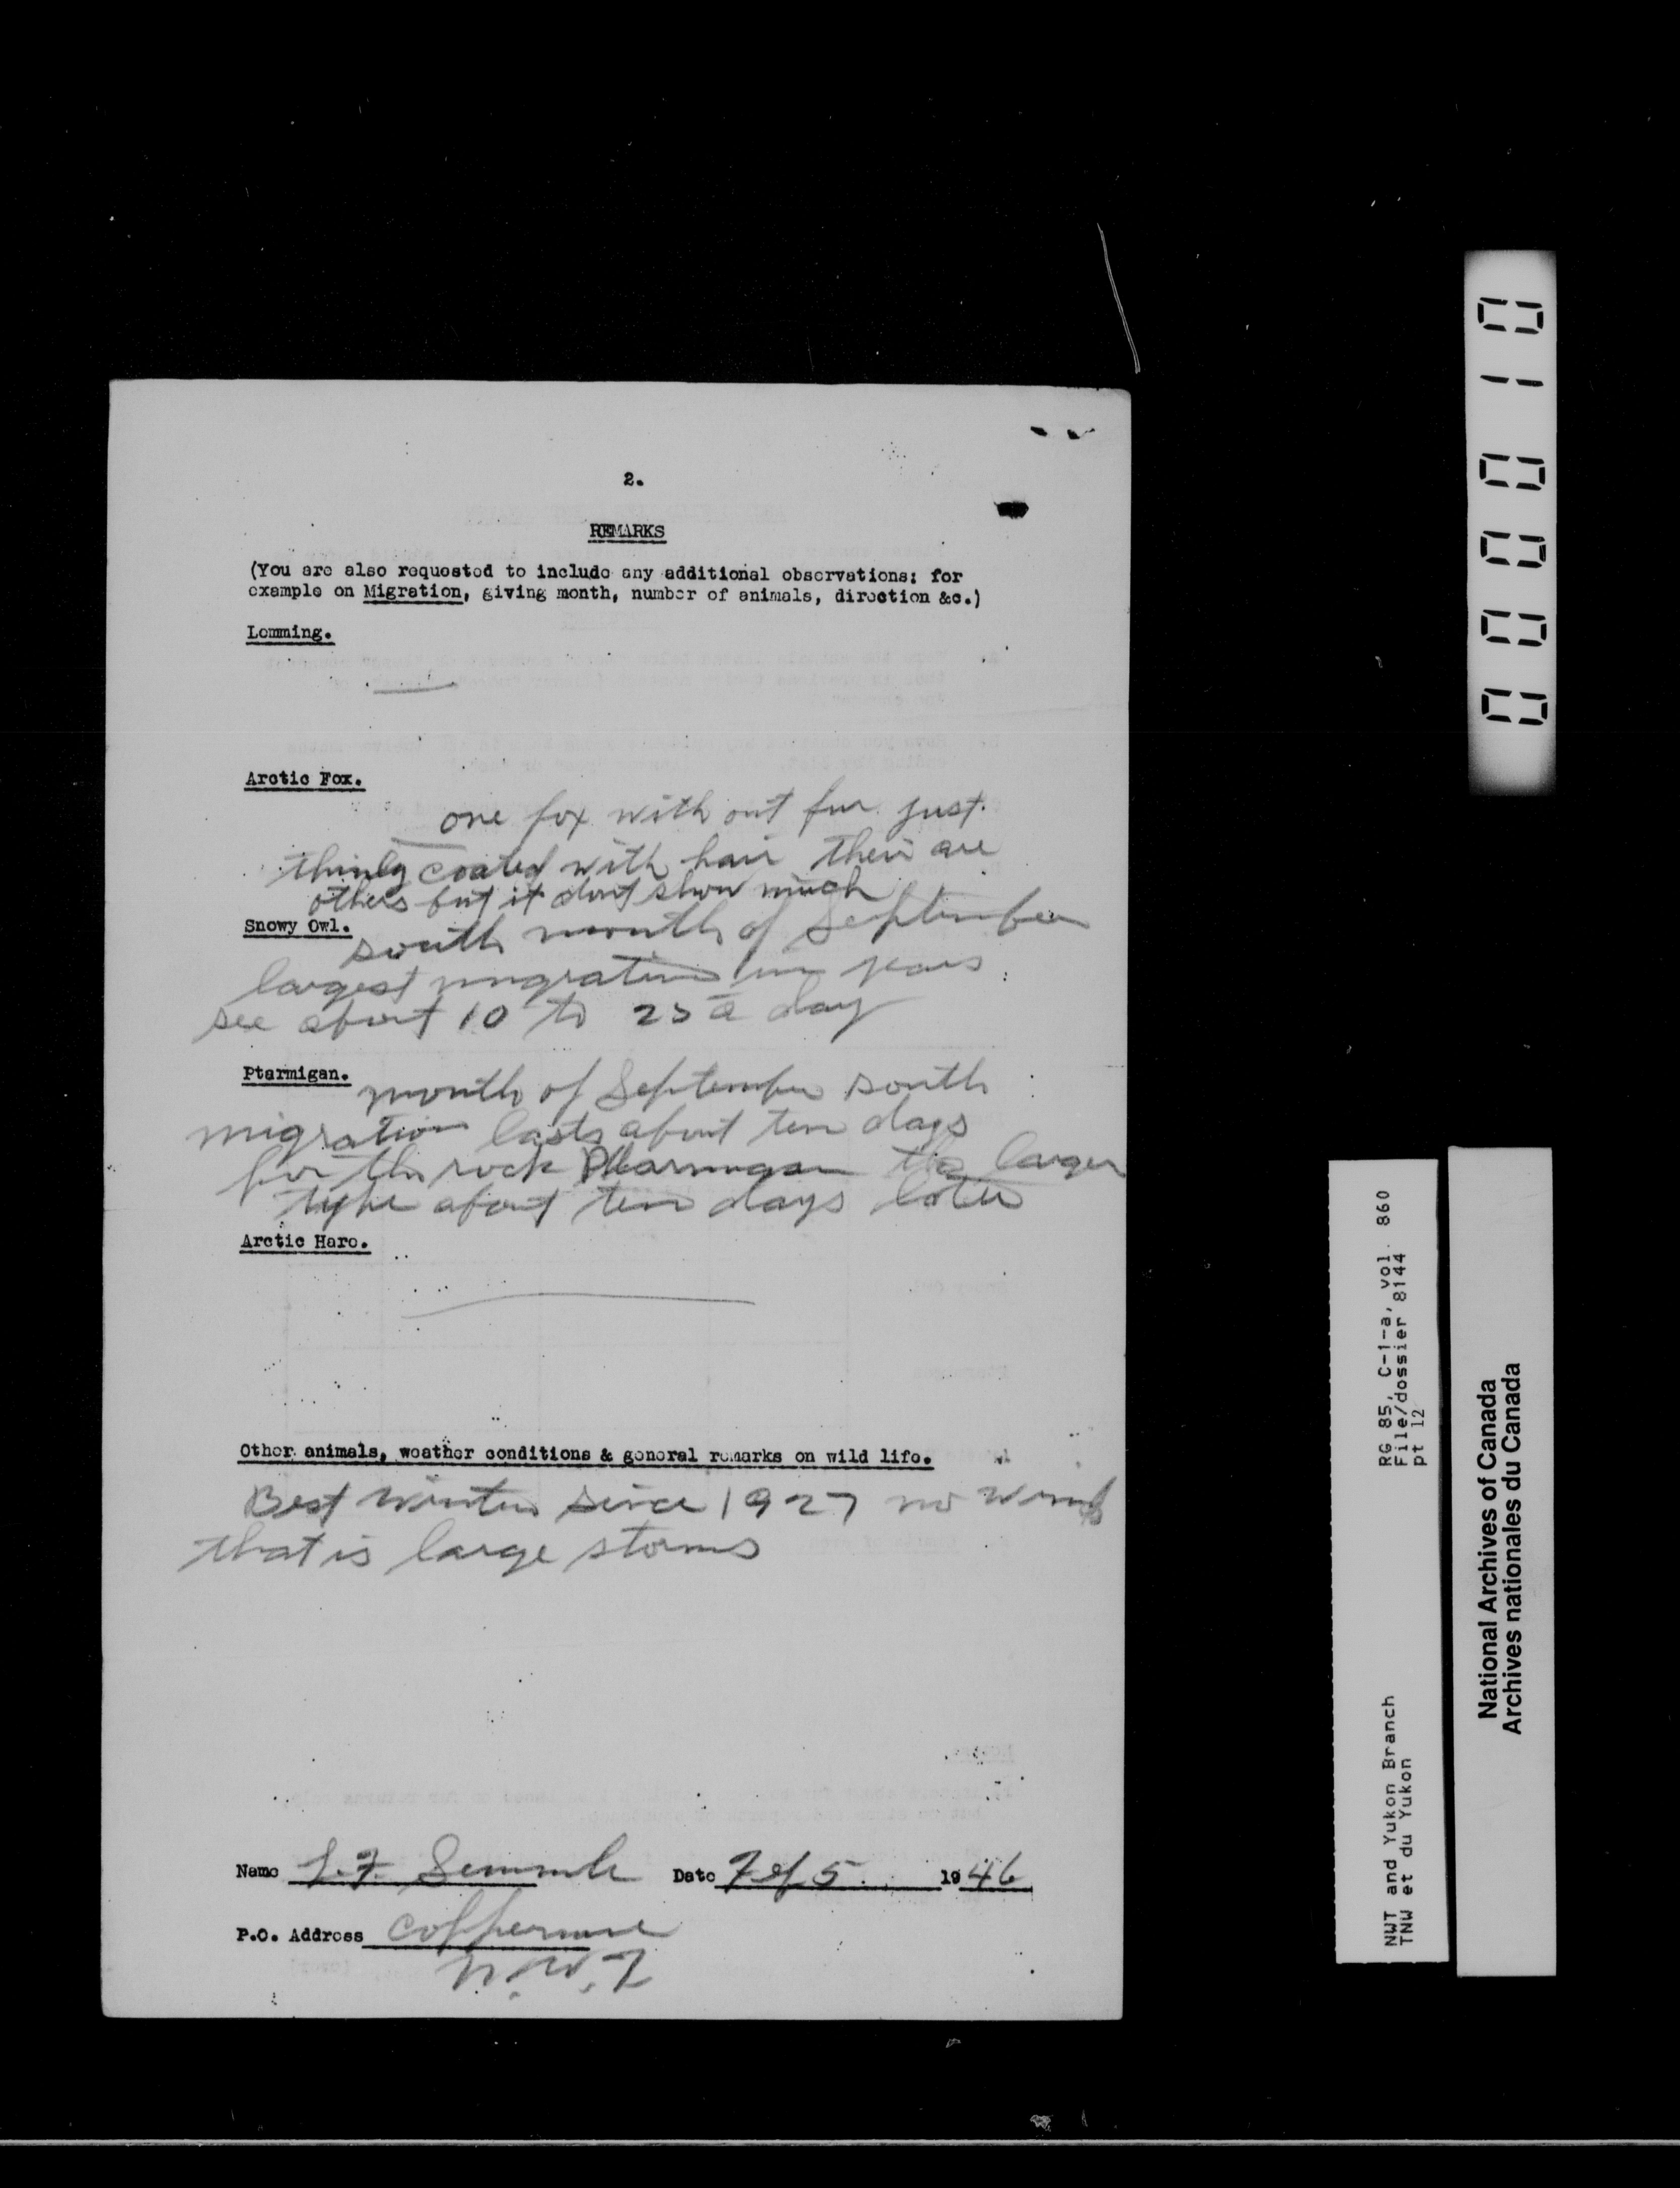 2.
REMARKS
(You are also requested to include any additional observations: for
example on Migration, giving month, number of animals, direction &c.)
Lemming.
Arctic Fox.
one fox with out fur just
thinly coated with hair their are
others but it dont show much
Snowy Owl.
south month of September
largest migration in years
see about 10 to 25 a day
Ptarmigan.
month of September south
migration lasts about ten days
for the rock Ptarmigan the larger
type about ten days later
Arctic Hare.
Other animals, weather conditions & general remarks on wild life.
Best winter since 1927 no winds
that is large storms
Name Semmle Date 7 of 5 1946
P.O. Address Coppermine
N.W.T
0000010
RG 85, C-1-a, vol. 860
File/dossier 8144
pt 12
NWT and Yukon Branch
TNW et du Yukon
National Archives of Canada
Archives nationales du Canada